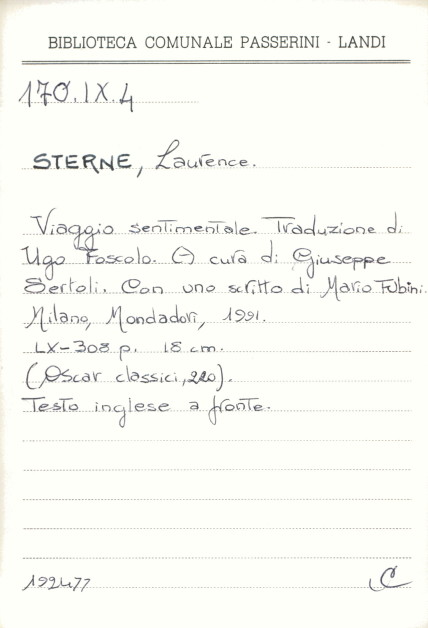 BIBLIOTECA COMUNALE PASSERINI - LANDI
170.IX.4
STERNE, Laurence.
Viaggio sentimentale. Traduzione di
Ugo Foscolo. A cura di Giuseppe
Sertoli. Con uno scritto di Mario Fubini.
Milano, Mondadori, 1991.
LX-308 p. 18 cm.
(Oscar classici, 220).
Testo inglese a fronte.
192477
C